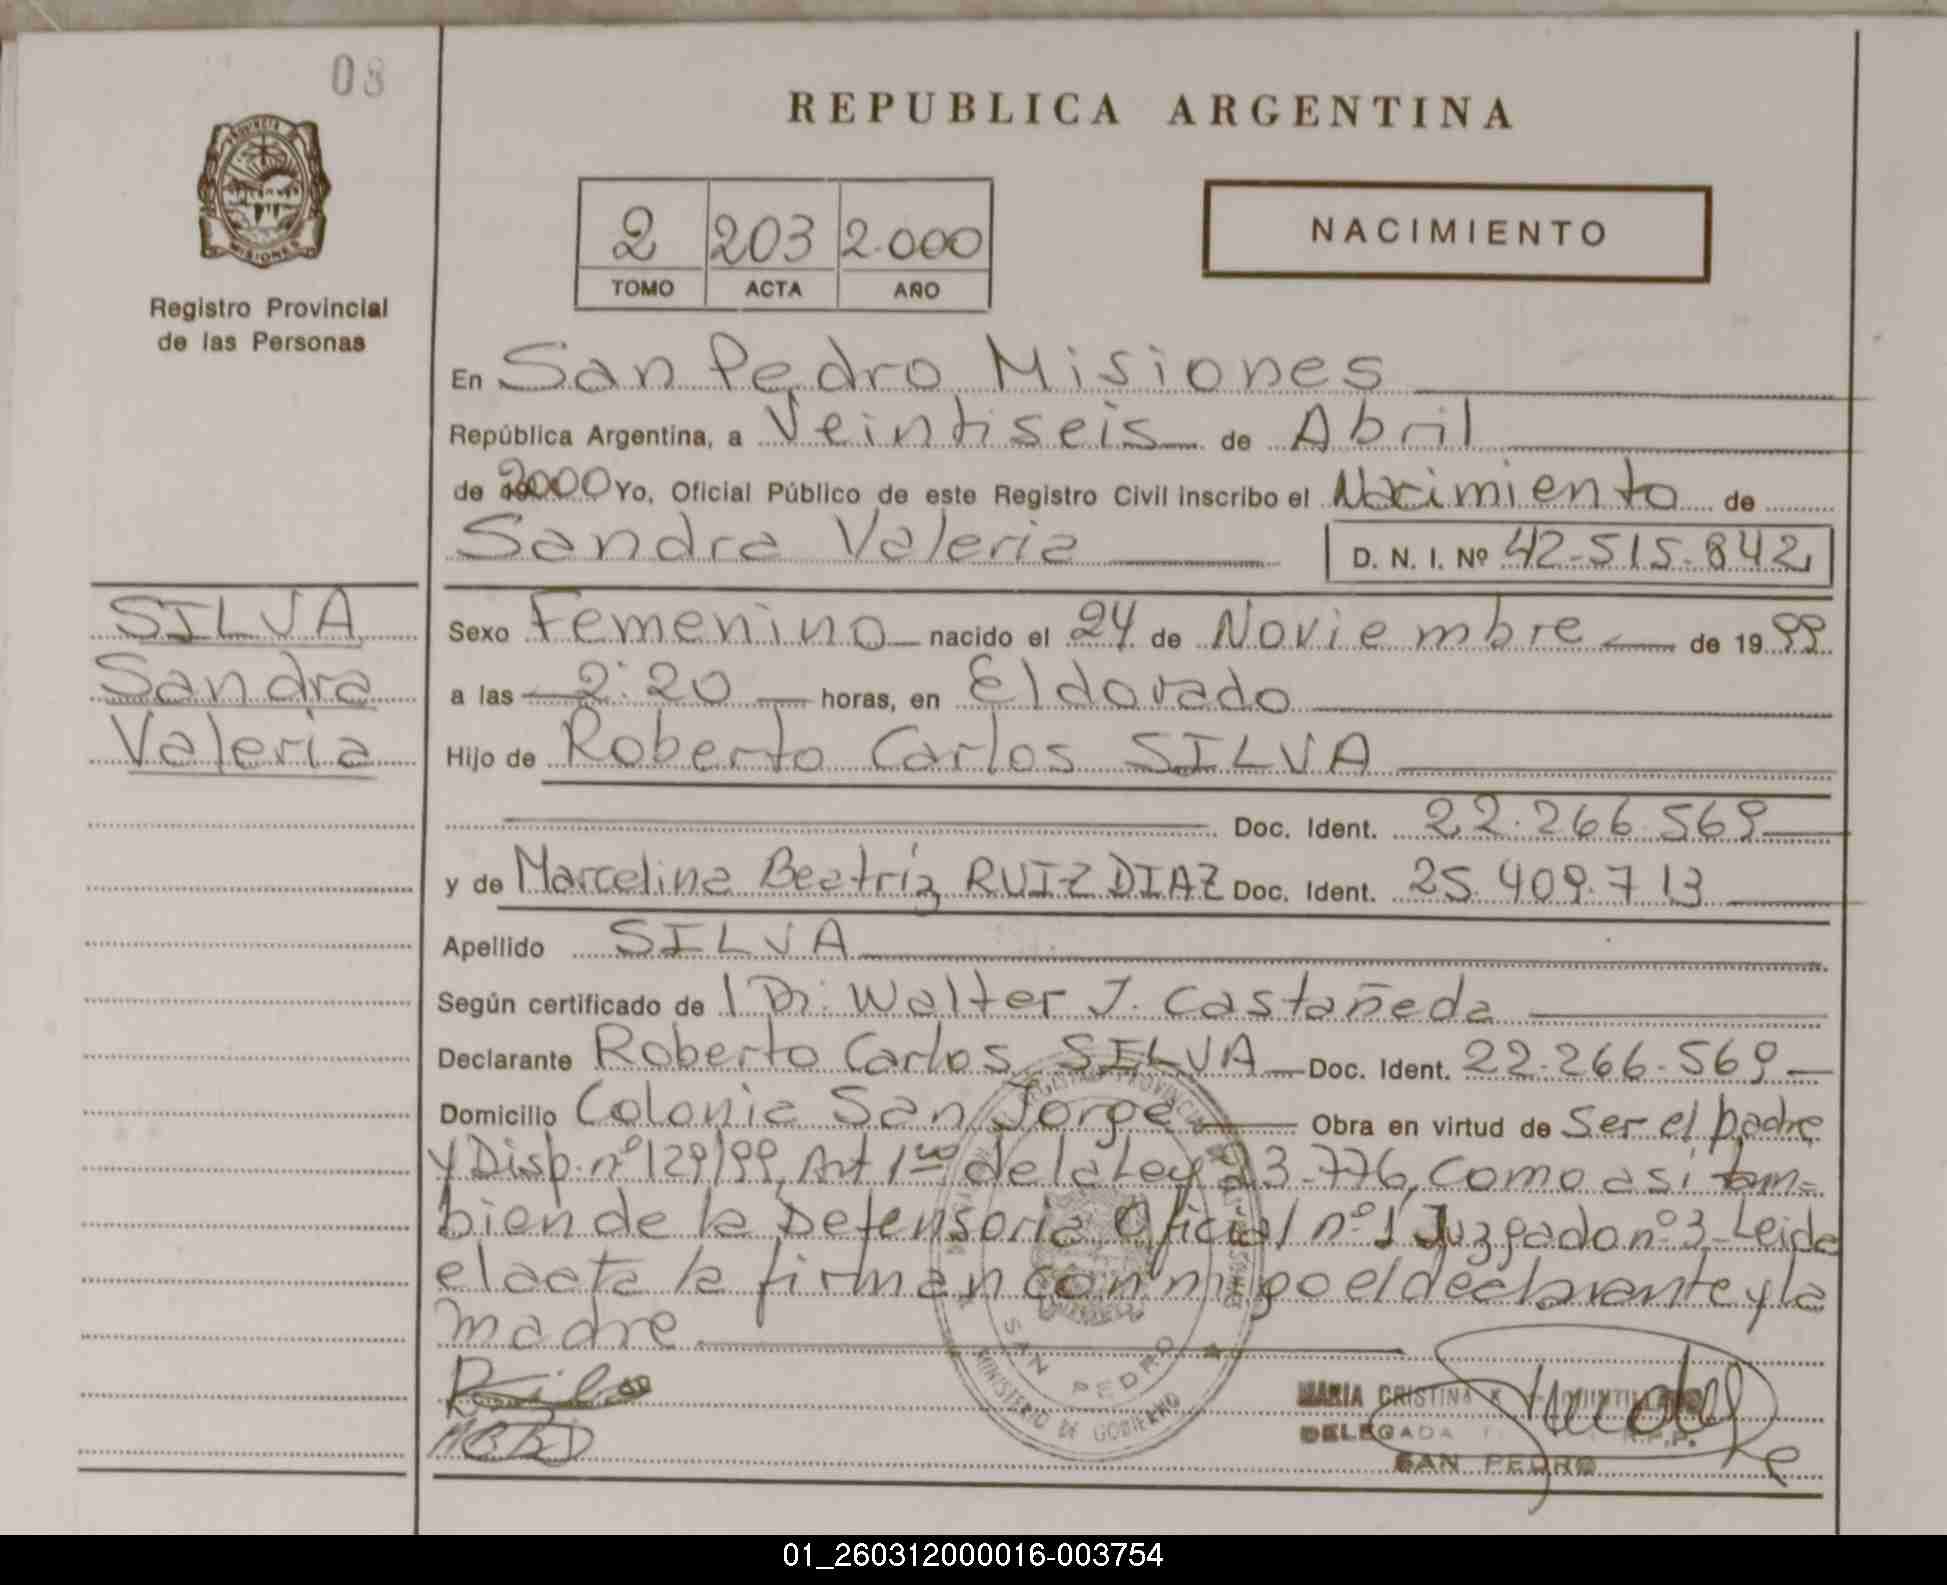 08
REPUBLICA ARGENTINA
PROVINCIA DE
MISIONES
Registro Provincial
de las Personas
2 203 2.000
TOMO ACTA AÑO
NACIMIENTO
En San Pedro Misiones
República Argentina, a Veintiseis de Abril
de 2000 Yo, Oficial Público de este Registro Civil inscribo el Nacimiento de
Sandra Valeria D. N. I. Nº 42-515.842
SILVA
Sandra
Valeria
Sexo Femenino nacido el 24 de Noviembre de 1999
a las 2:20 horas, en Eldorado
Hijo de Roberto Carlos SILVA
Doc. Ident. 22.266.569
y de Marcelina Beatríz RUIZ DIAZ Doc. Ident. 25.409.713
Apellido SILVA
Según certificado de 1 Dr: Walter J. Castañeda
Declarante Roberto Carlos SILVA Doc. Ident. 22.266.569
Domicilio Colonia San Jorge Obra en virtud de Ser el padre
y Disp. nº 129/99, Art 1ro de la Ley 23.776, como asi tam=
bien de la Defensoria Oficial nº 1 Juzgado nº 3- Leida
el acta la firman conmigo el declarante y la
madre
SAN PEDRO
MINISTERIO DE GOBIERNO
MARIA CRISTINA K
DELEGADA R.P.P.
SAN PEDRO
01_260312000016-003754